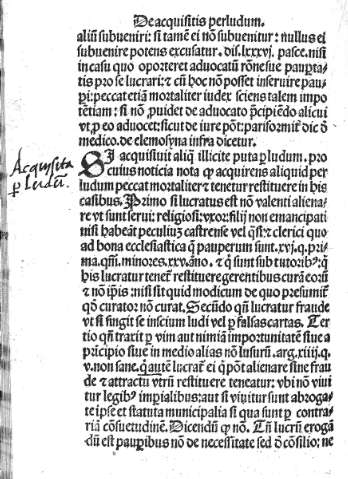 De acquisitis per ludum.
aliũ subueniri: si tamẽ ei nõ subuenitur: nullus ei
subuenire potens excusatur. dis. lxxxvj. pasce. nisi
in casu quo oporteret aduocatũ rõne sue paup̱ta-
tis pro se lucrari: ⁊ cũ hoc nõ posset inseruire pau-
p̱i: peccat etiã mortaliter iudex sciens talem impo
tẽtiam: si nõ ꝓuidet de aduocato p̃cipiẽdo alicui
vt ꝓ eo aduocet: sicut de iure põt: pariformit̃ dic ð
medico. de elemosyna infra dicetur.
Acquisita
ꝑ ludũ.
SI acquisiuit aliq̃ illicite puta ꝑ ludum. pro
cuius noticia nota ꝙ acquirens aliquid per
ludum peccat mortaliter ⁊ tenetur restituere in his
casibus. Primo si lucratus est nõ valenti aliena-
re vt sunt serui: religiosi: vxor: filij non emancipati
nisi habeãt peculiũ castrense vel q̃si: ⁊ clerici quo
ad bona ecclesiastica q̃ pauperum sunt. xvj. q. pri-
ma. qm̃. minores. xxv. ãno. ⁊ q̃ sunt sub tutorib⁹: q̃
his lucratur tenet̃ restituere gerentibus curã eorũ
⁊ nõ ip̃is: nisi sit quid modicum de quo presumit̃
qð curator nõ curat. Secũdo qñ lucratur fraude
vt si fingit se inscium ludi vel ꝑ falsas cartas. Ter
tio qñ traxit ꝑ vim aut nimiã importunitatẽ siue a
p̃ncipio siue in medio alias nõ lusurũ. arg. xiiij. q.
v. non sane. q̃ autẽ lucrat̃ ei q̃ põt alienare sine frau
de ⁊ attractu vtrũ restituere teneatur: vbi nõ viui
tur legib⁹ imp̱ialibus: aut si viuitur sunt abroga-
te ipse ⁊ statuta municipalia si qua sunt ꝑ contra-
riã cõsuetudinẽ. Dicendũ ꝙ nõ. Tñ lucrũ erogã
dũ est paup̱ibus nõ de necessitate sed ð cõsilio: ne